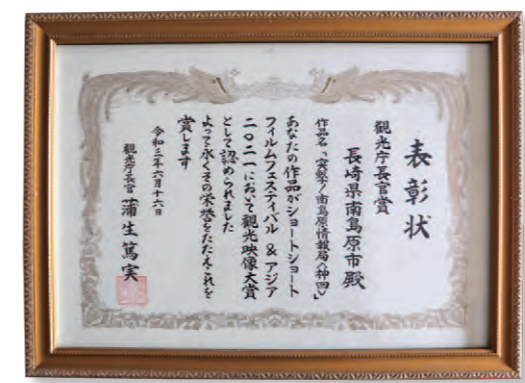 表彰状
観光庁長官賞
長崎県南島原市殿
作品名「夢数ノ南島原情報局〈神回〉」
あなたの作品がショートショート
フィルムフェスティバル & アジア
二〇二一において観光映像大賞
として認められました
よって永くその栄誉をたたえこれを
賞します
令和三年六月十六日
観光庁長官 蒲生篤実